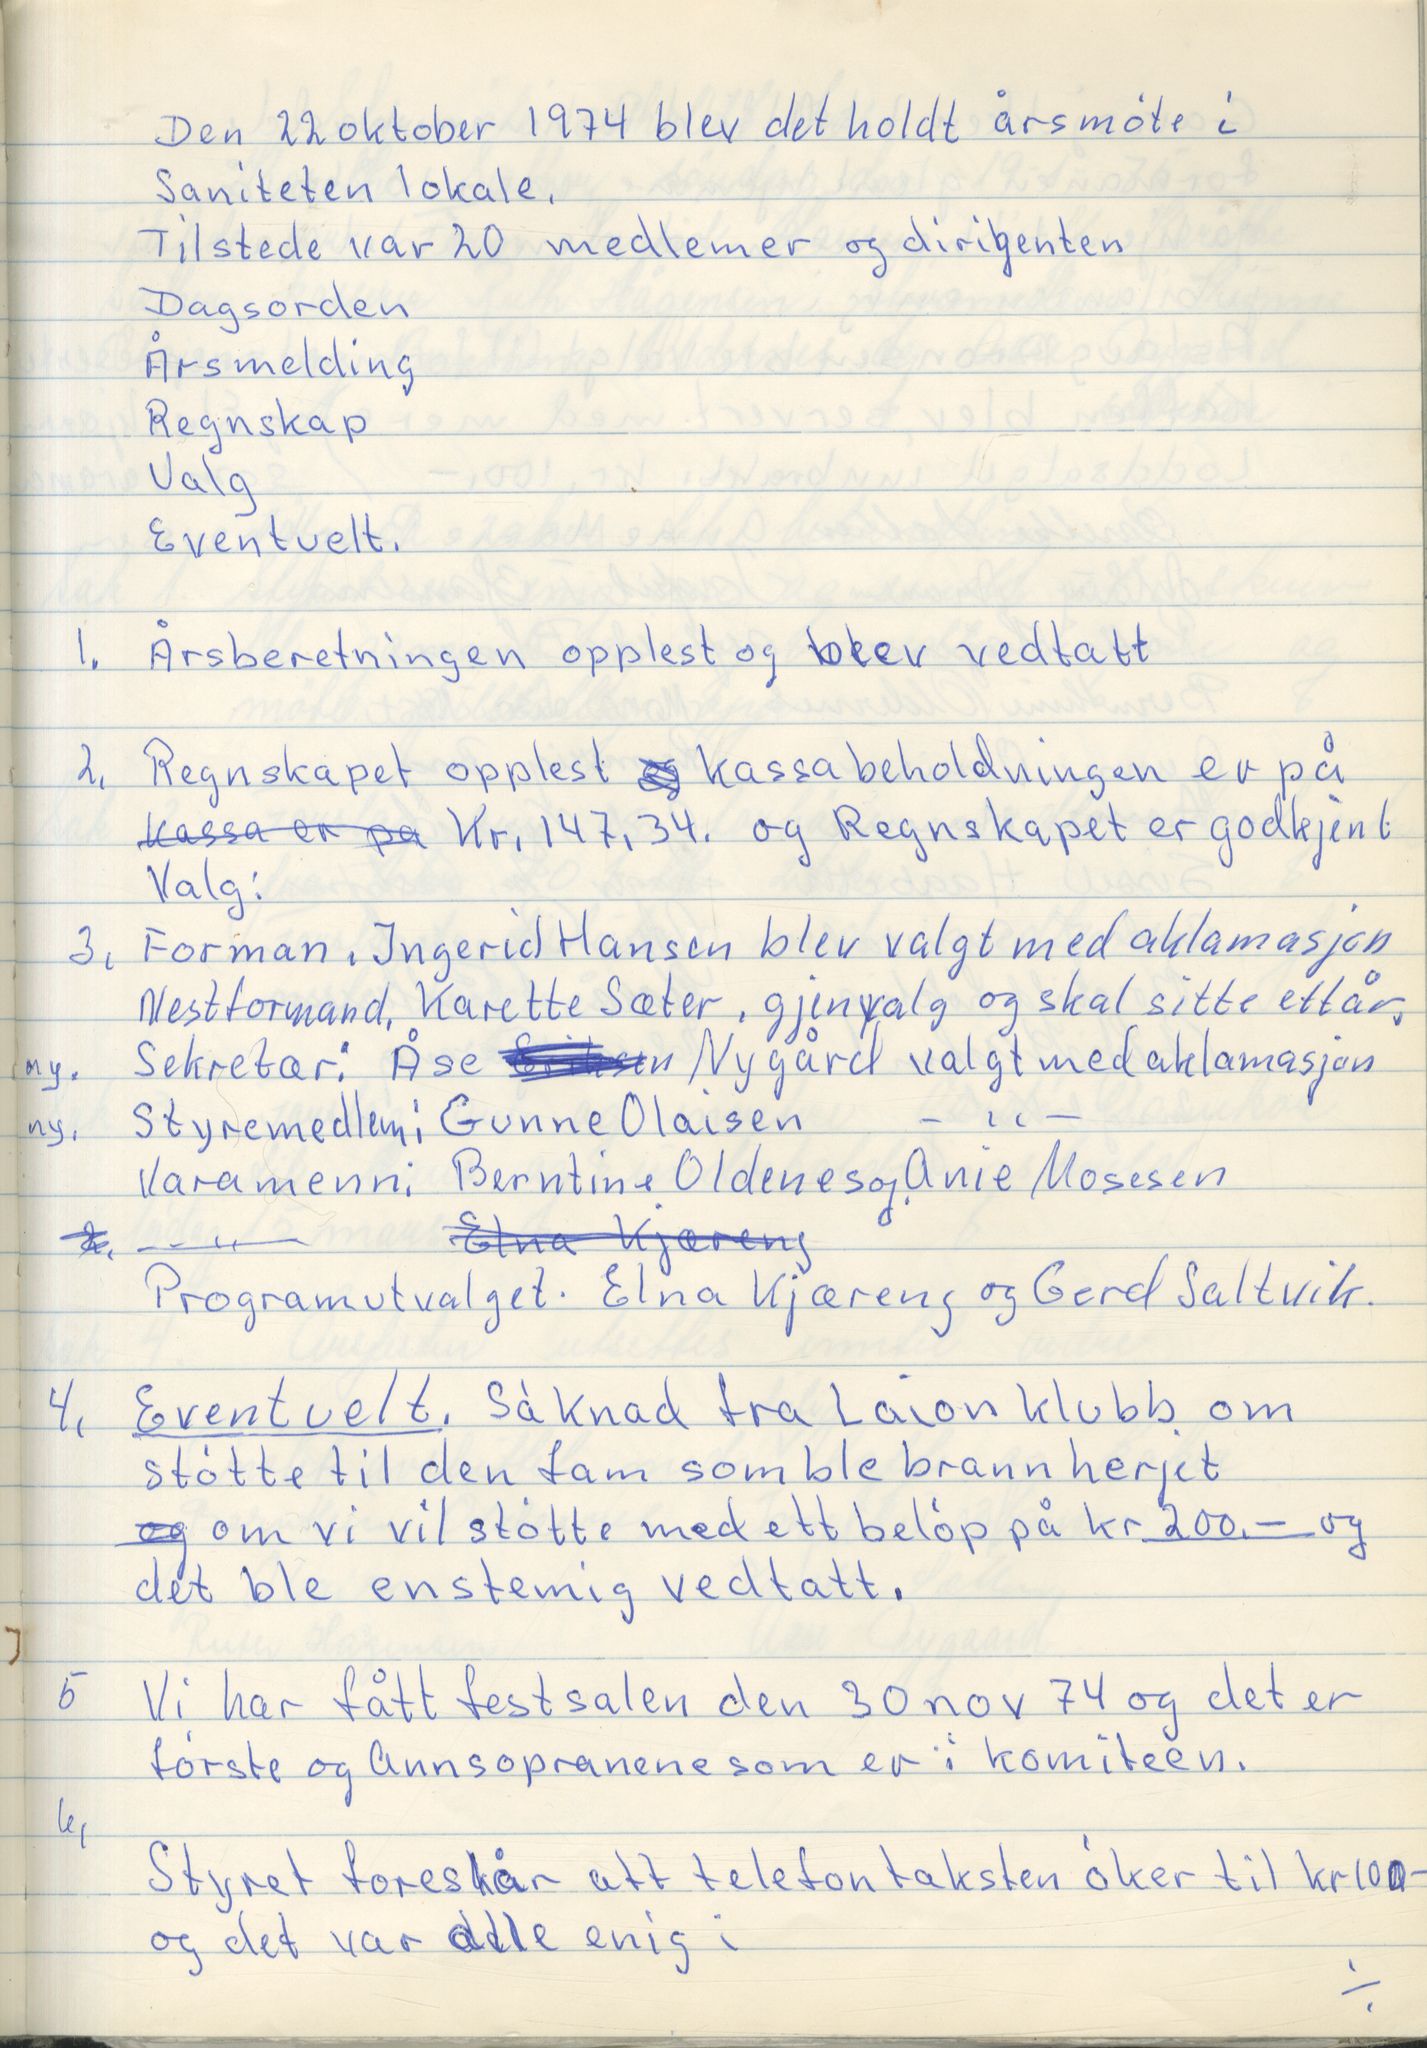 Den 22 oktober 1974 blev det holdt årsmöte i
Saniteten lokale.
Tilstede var 20 medlemer og dirigenten
Dagsorden
Årsmelding
Regnskap
Valg
Eventuelt.
1. Årsberetningen opplest og blev vedtatt
2. Regnskapet opplest og kassabeholdningen er på
kassa er på Kr, 147,34. og Regnskapet er godkjent
Valg:
3, Forman, Ingerid Hansen blev valgt med aklamasjon
Nestformand, Karette Sæter, gjenvalg og skal sitte ett år,
ny. Sekretær: Åse Nygård valgt med aklamasjon
ny. Styremedlem; Gunne Olaisen - " -
Varamenn: Berntine Oldenes og Anie Mosesen
- " - Elna Kjæreng
Programutvalget. Elna Kjæreng og Gerd Saltvik.
4, Eventuelt. Såknad fra Laion klubb om
stötte til den fam som ble brannherjet
og om vi vil stötte med ett belöp på kr 200.- og
det ble enstemig vedtatt.
5 Vi har fått festsalen den 30 nov 74 og det er
förste og Annsopranene som er i komiteen.
6,
Styret foreslår att telefontaksten öker til kr 100-
og det var alle enig i
÷